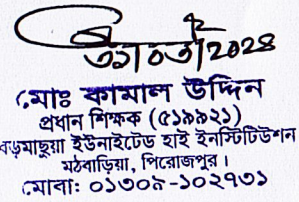 ৩১/০৩/২০২৪
মোঃ কামাল উদ্দিন
প্রধান শিক্ষক (৫১৯৯২১)
বড়মাছুয়া ইউনাইটেড হাই ইনস্টিটিউশন
মঠবাড়িয়া, পিরোজপুর।
মোবা: ০১৩০৯-১০২৭৩১